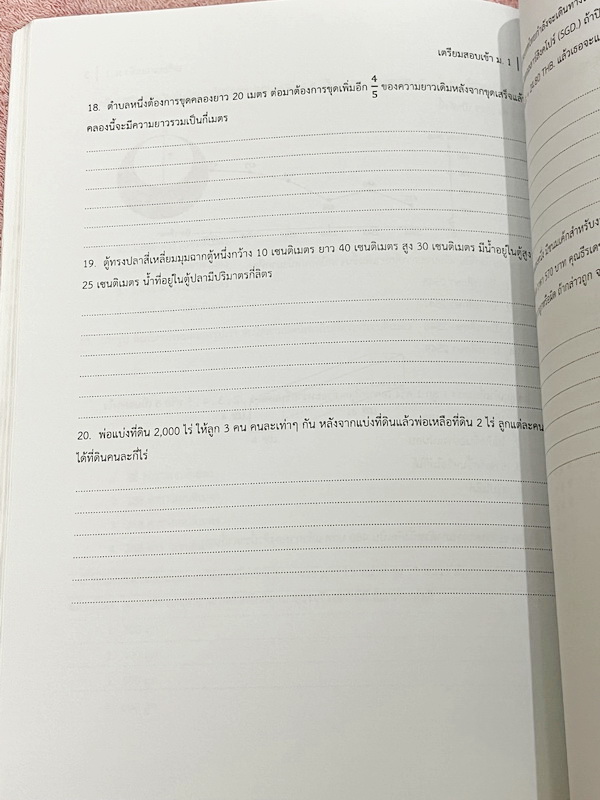 เตรียมสอบเข้า ม. 1 |
18. ตำบลหนึ่งต้องการขุดคลองยาว 20 เมตร ต่อมาต้องการขุดเพิ่มอีก 4/5 ของความยาวเดิมหลังจากขุดเสร็จแล้ว
คลองนี้จะมีความยาวรวมเป็นกี่เมตร
19. ตู้ทรงปลาสี่เหลี่ยมมุมฉากตู้หนึ่งกว้าง 10 เซนติเมตร ยาว 40 เซนติเมตร สูง 30 เซนติเมตร มีน้ำอยู่ในตู้สูง
25 เซนติเมตร น้ำที่อยู่ในตู้ปลามีปริมาตรกี่ลิตร
20. พ่อแบ่งที่ดิน 2,000 ไร่ ให้ลูก 3 คน คนละเท่าๆ กัน หลังจากแบ่งที่ดินแล้วพ่อเหลือที่ดิน 2 ไร่ ลูกแต่ละคน
ได้ที่ดินคนละกี่ไร่
กำลังจะเดินทาง
(SGD.) ถ้า
THB. แล้วเธอจะ
สำหรับ
570 บาท
ถ้ากล่าวถูก